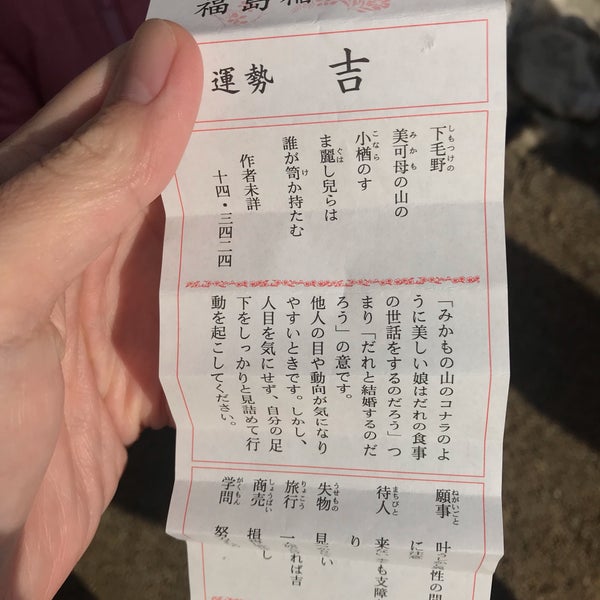 福島稲
運勢 吉
下毛野
しもつけの
美可母の山の
みかも
小楢のす
こなら
ま麗し兒らは
ぐは
誰が笥か持たむ
け
作者未詳
十四・三四二四
「みかもの山のコナラのよ
うに美しい娘はだれの食事
の世話をするのだろう」つ
まり「だれと結婚するのだ
ろう」の意です。
他人の目や動向が気になり
やすいときです。しかし、
人目を気にせず、自分の足
下をしっかりと見詰めて行
動を起こしてください。
願事
ねがいごと
叶
性の問
に
待人
まちびと
来
も支障
り
失物
うせもの
見
い
旅行
りょこう
一
れば吉
商売
しょうばい
損
し
学問
がくもん
努